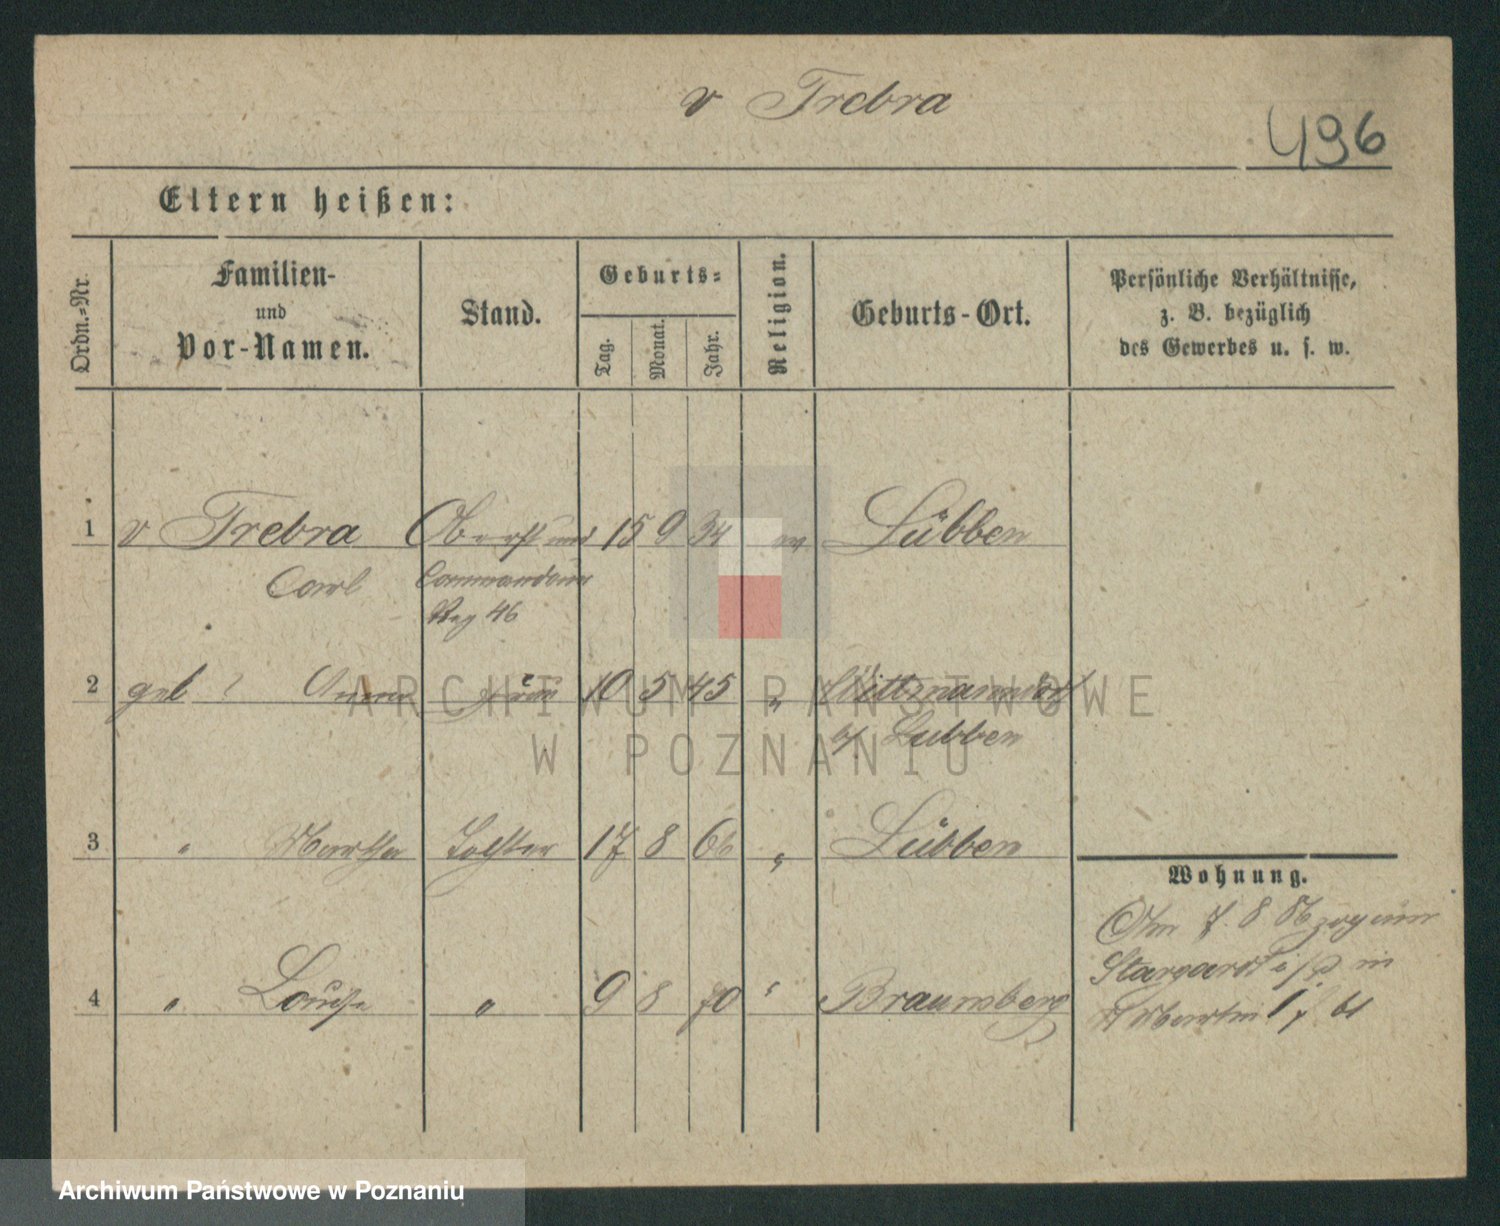 v Trebra
496
Eltern heißen:
Ordn.-Nr.
Familien-
und
Vor-Namen.
Stand.
Geburts-
Tag.
Monat.
Jahr.
Religion.
Geburts-Ort.
Persönliche Verhältnisse,
z. B. bezüglich
des Gewerbes u. s. w.
1 v Trebra Oberst und 15 9 34 ev Lübben
Carl Commandeur
Reg 46
2 geb ? Anna Frau 10 5 45 "
b/ Lübben
3 " Martha Tochter 17 8 66 " Lübben
Wohnung.
4 " Louise " 9 8 70 " Braunsberg
7. 8
Stargard i/P in
St Martin
ARCHIWUM PAŃSTWOWE
W POZNANIU
Archiwum Państwowe w Poznaniu